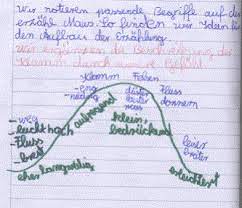 Wir notieren passende Begriffe auf der
erzähl Maus. So finden wir Ideen für
den Aufbau der Erzählung.
Wir ergänzen die Beschreibung der
Klamm durch unsere Gefühle.
Klamm Felsen
-eng düster Fluss
-niedrig donnern
-weg
-leicht hoch aufregend klein, leiser
-Fluss bedrückend breiter
-breit
eher langweilig erleichtert